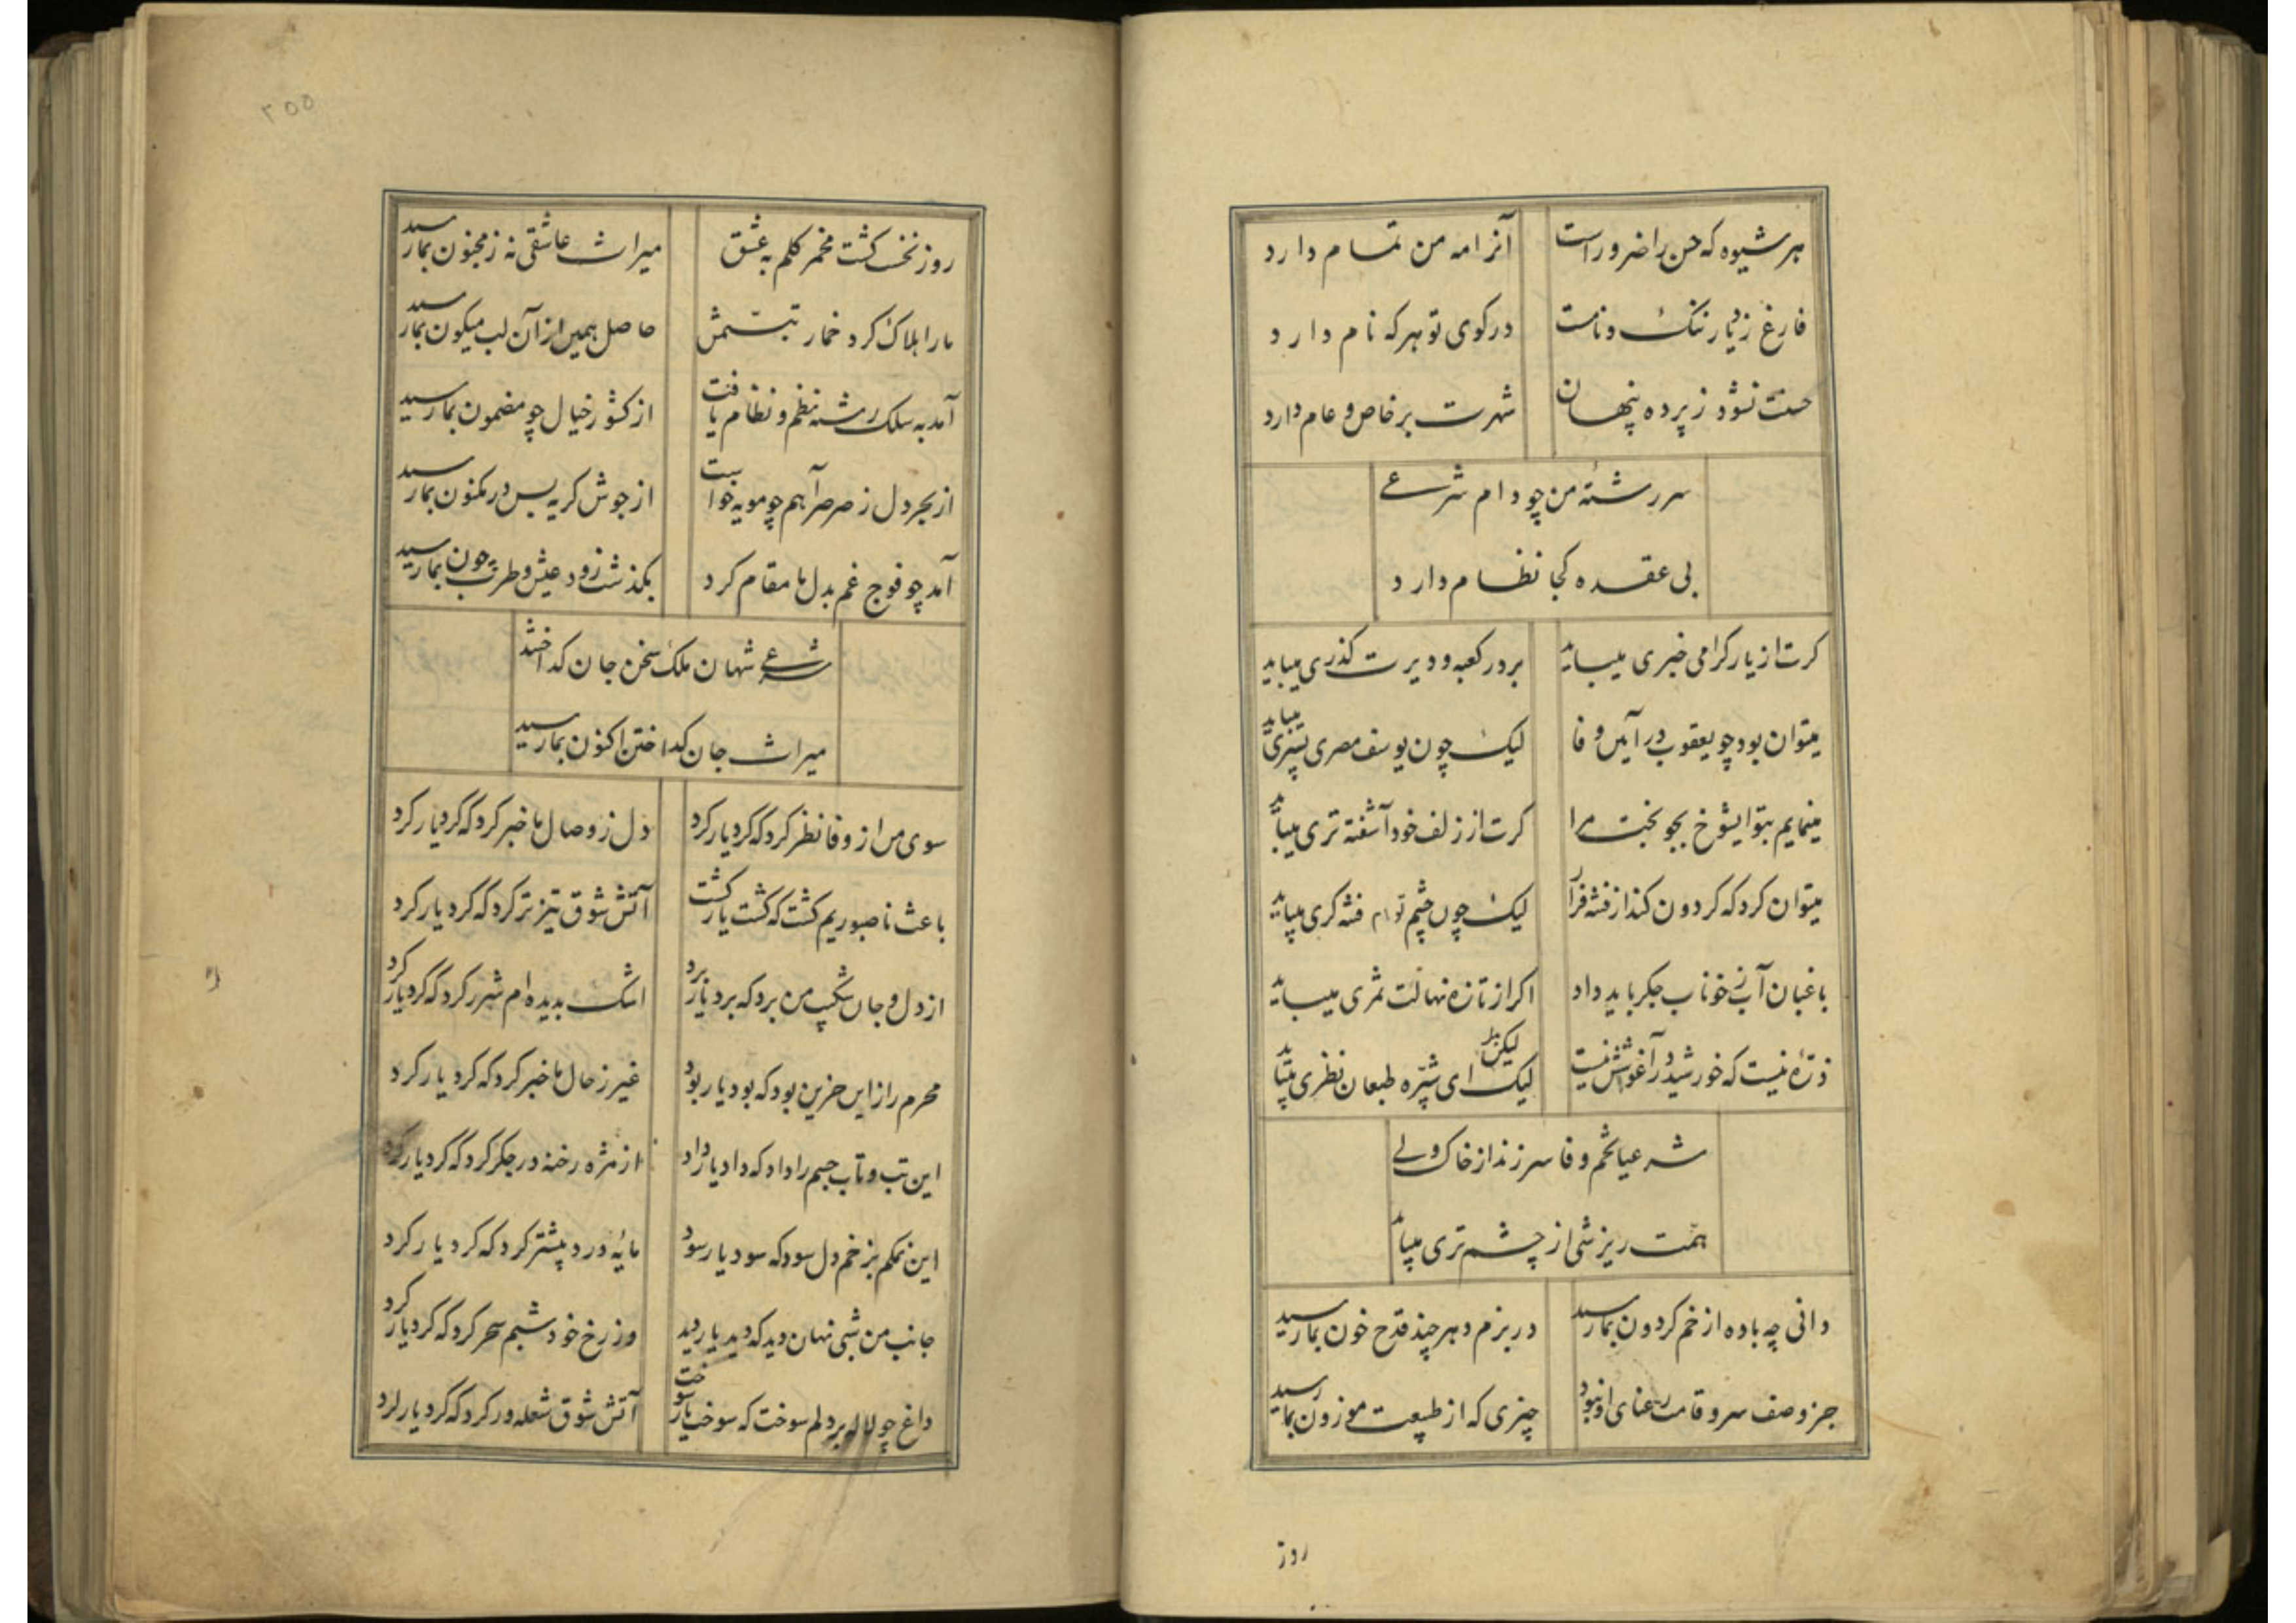 هر شیوه که حسن را ضرور است آنرا مه من تمام دارد
فارغ ز دیار ننک و نامست در کوی تو هر که نام دارد
حسنت نشود ز پرده پنهان شهرت بر خاص و عام دارد
سر رشتهٔ من چو دام شرعی
بی عقده کجا نظام دارد
کرت از یار کرامی خبری میباید بر در کعبه و دیرت کذری میباید
میتوان بود چو یعقوب در آیین وفا لیک چون یوسف مصری پسری میباید
مینمایم بتو ایشوخ بجو بخت مرا کرت از زلف خود آشفته تری میباید
میتوان کرد که کردون کند از فتنه فرار لیک چون چشم توام فتنه کری میباید
باغبان آبی ز خوناب جکر باید داد اکر از تازه نهالت ثمری میباید
لیکن
ذرهٔ نیست که خورشید در آغوشش نیست لیک ای شپره طبعان نظری میباید
شرعیا تخم وفا سر زند از خاک ولی
همت ریزشی از چشم تری میباید
دانی چه باده از خم کردون بما رسید در بزم دهر چند قدح خون بما رسید
جز وصف سرو قامت رعنای او نبود چیزی که از طبیعت موزون بما رسید
روز
۲۵۵
روز نخست کشت مخمر کلم به عشق میراث عاشقی نه ز مجنون بما رسید
ما را هلاک کرد خمار تبسمش حاصل همین از آن لب میکون بما رسید
آمد به سلک رشته نظم و نظام یافت از کشور خیال چو مضمون بما رسید
از بحر دل ز صرصر آهم چو مویه خواست از جوش کریه بس در مکنون بما رسید
آمد چو فوج غم بدل ما مقام کرد بکذشت زود عیش و طرب چون بما رسید
شرعی شهان ملک سخن جان کداختند
میراث جان کداختن اکنون بما رسید
سوی من از وفا نظر کرد که کرد یار کرد دل ز وصال ما خبر کرد که کرد یار کرد
باعث ناصبوریم کشت که کشت یار کشت آتش شوق تیزتر کرد که کرد یار کرد
از دل و جان شکیب من برد که برد یار برد اشک بدیده ام شرر کرد که کرد یار کرد
محرم راز این حزین بود که بود یار بود غیر ز حال ما خبر کرد که کرد یار کرد
این تب و تاب جسم را داد که داد یار داد از مژه رخنه در جکر کرد که کرد یار کرد
این نمکم بزخم دل سود که سود یار سود مایهٔ درد بیشتر کرد که کرد یار کرد
جانب من شبی نهان دید که دید یار دید وز رخ خود شبم سحر کرد که کرد یار کرد
داغ چو لاله بر دلم سوخت که سوخت یار سوخت آتش شوق شعله ور کرد که کرد یار کرد